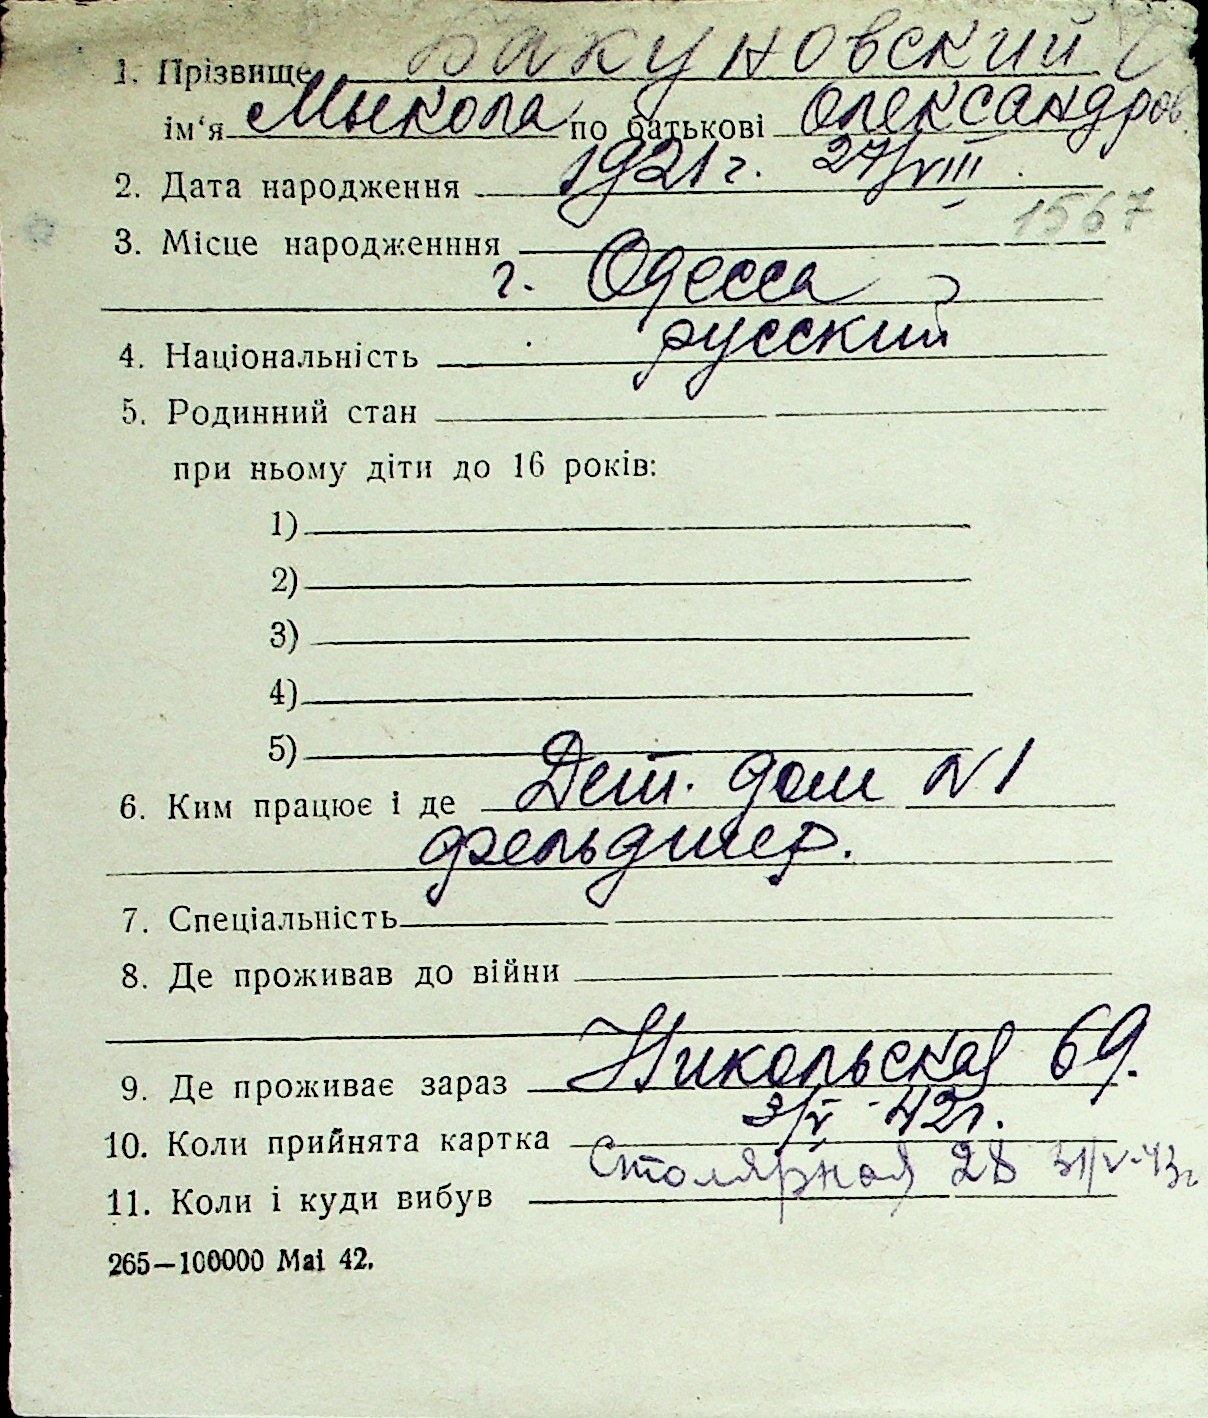 1. Прізвище Бакуновский
ім'я Мыкола по батькові Олександров
2. Дата народження 1921 г. 27/VIII
1567
3. Місце народженння
г. Одесса
4. Національність русский
5. Родинний стан
при ньому діти до 16 років:
1)
2)
3)
4)
5)
6. Ким працює і де Дет. дом N1
фельдшер.
7. Спеціальність
8. Де проживав до війни
9. Де проживає зараз Никольская 69.
10. Коли прийнята картка 3/V-42г.
11. Коли і куди вибув Столярная 28 31/V-43г
265—100000 Mai 42.